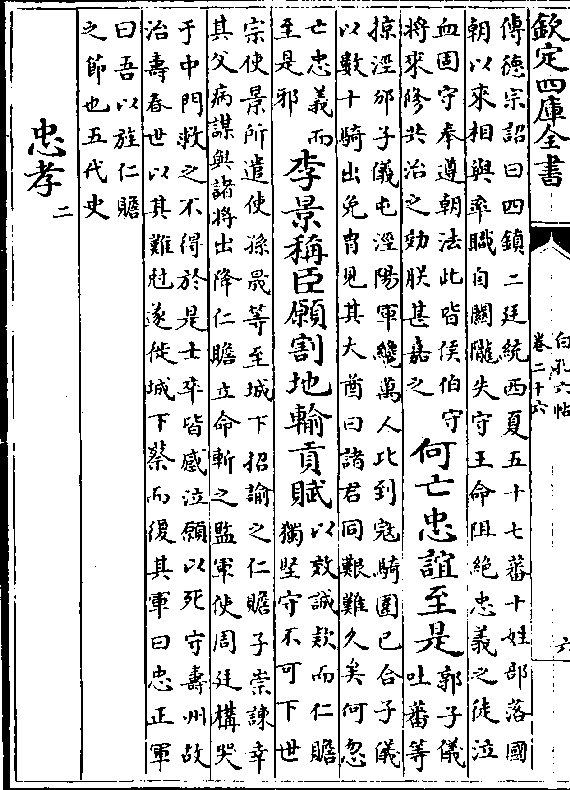 欽定四庫全書
白孔六帖
卷二十六
六
傳德宗詔曰四鎮二廷統西夏五十七蕃十姓部落國
朝以來相與率職自關隴失守王命阻絕忠義之徒泣
血固守奉遵朝法此皆侯伯守
將來修共治之効朕甚嘉之
何亡忠誼至是
郭子儀
吐蕃等
掠涇邠子儀屯涇陽軍纔萬人比到寇騎圍已合子儀
以數十騎出免胄見其大酋曰諸君同艱難久矣何忽
亡忠義而
至是邪
李景稱臣願割地輸貢賦
以效誠款而仁贍
獨堅守不可下世
宗使景所遣使孫晟等至城下招諭之仁贍子崇諫幸
其父病謀與諸將出降仁贍立命斬之監軍使周廷構哭
于中門救之不得於是士卒皆感泣願以死守壽州故
治壽春世以其難尅遂徙城下蔡而復其軍曰忠正軍
曰吾以旌仁贍
之節也五代史
忠孝二